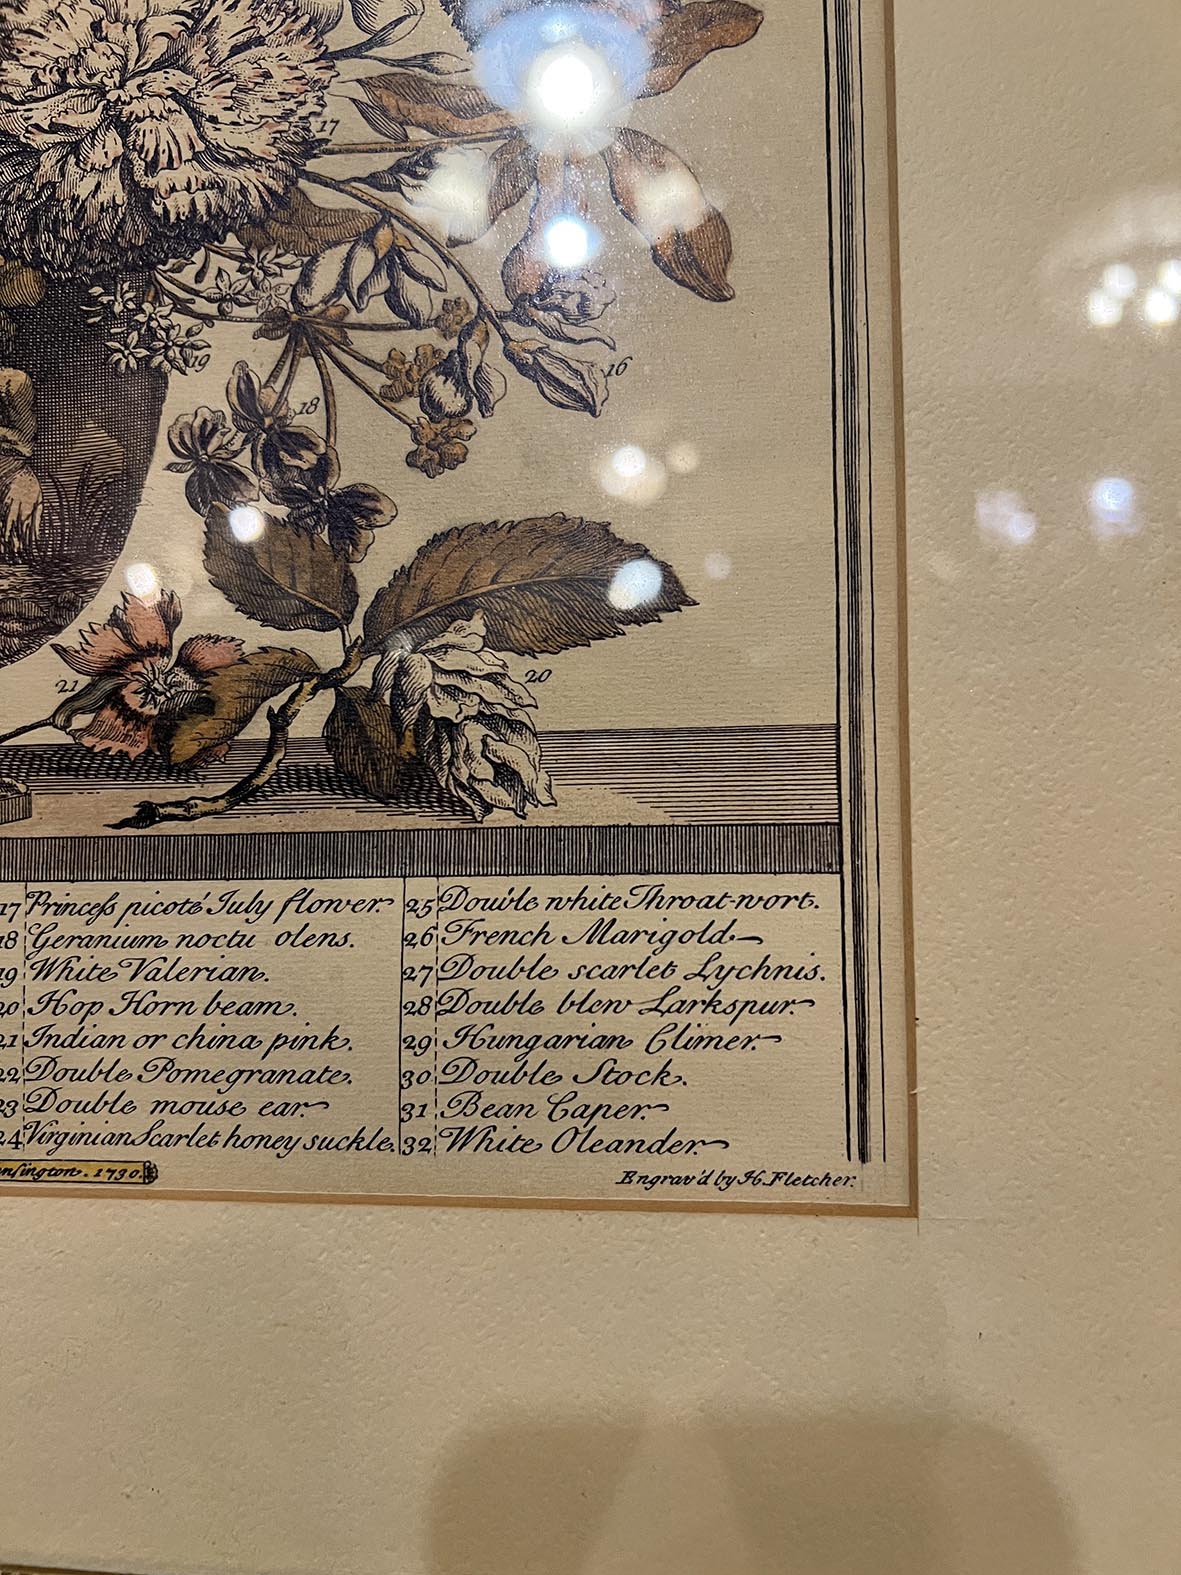 17
16
19
18
20
21
17 Princess picoté July flower.
18 Geranium noctu olens.
19 White Valerian.
20 Hop Horn beam.
21 Indian or china pink.
22 Double Pomegranate.
23 Double mouse ear.
24 Virginian Scarlet honey suckle.
25 Double white Throat-wort.
26 French Marigold
27 Double scarlet Lychnis.
28 Double blew Larkspur.
29 Hungarian Climer.
30 Double Stock.
31 Bean Caper.
32 White Oleander.
nsington. 1730.
Engrav'd by H. Fletcher.